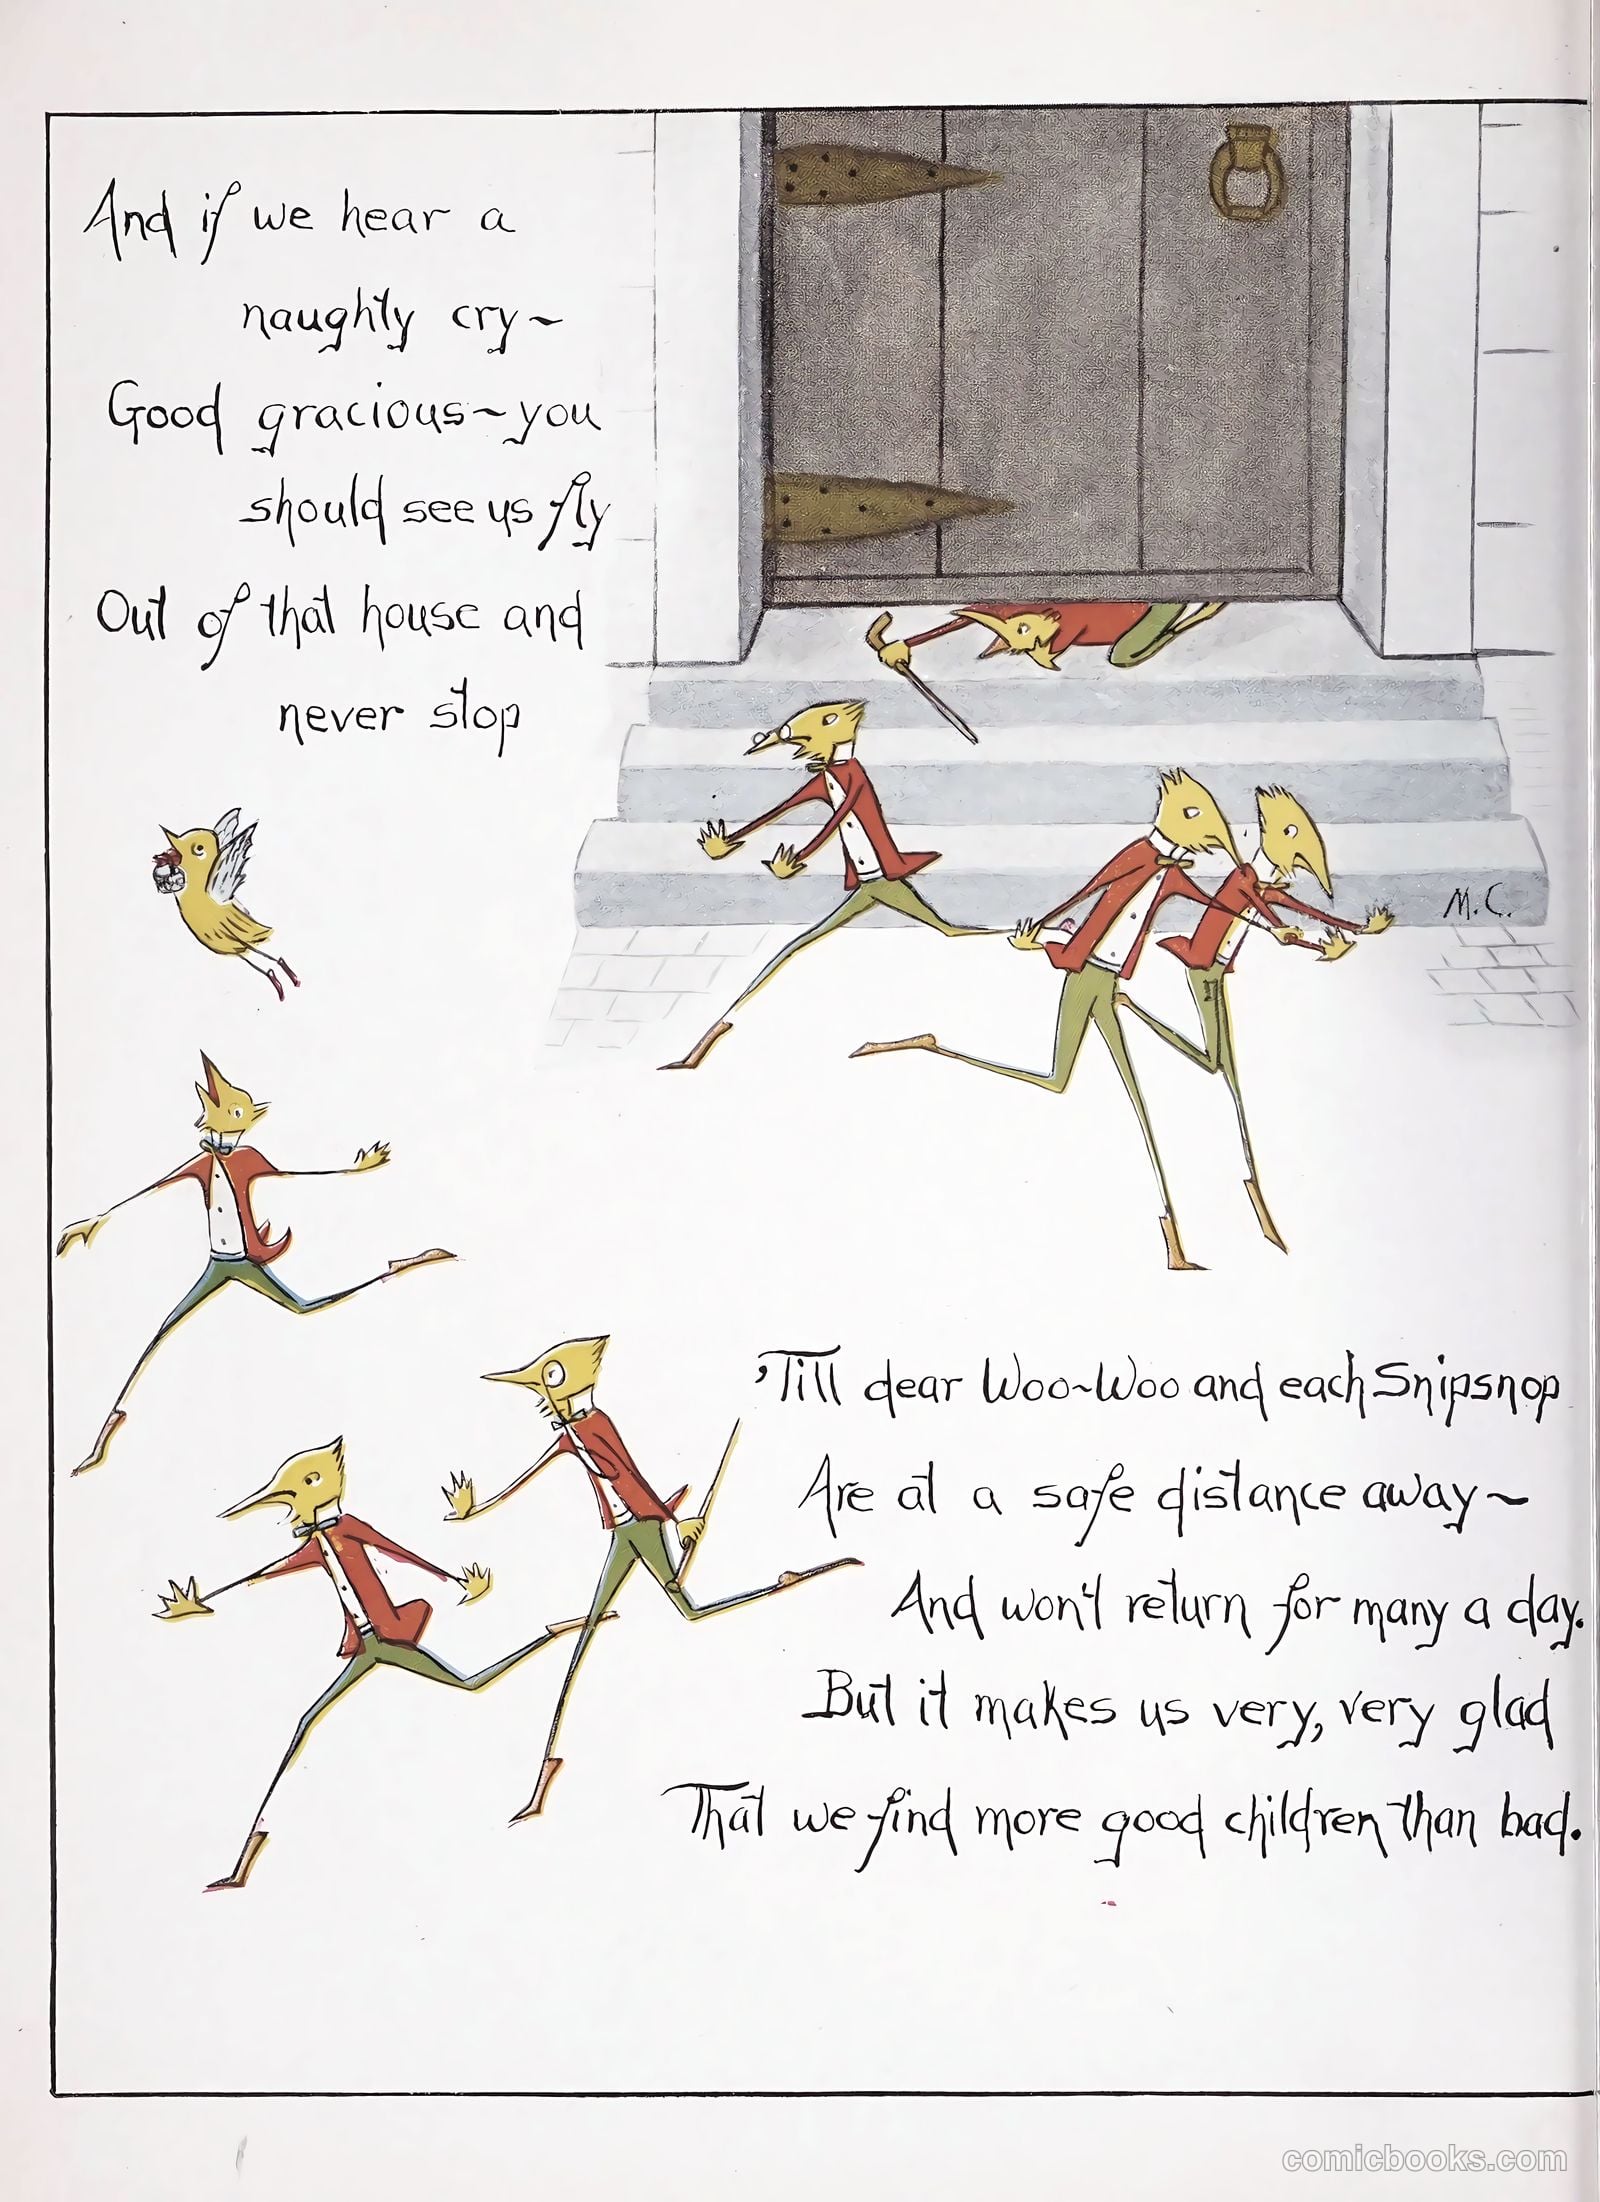 And if we hear a
naughty cry~
Good gracious~you
should see us fly
Out of that house and
never stop
M.C.
'Till dear Woo~Woo and each Snipsnop
Are at a safe distance away~
And won't return for many a day.
But it makes us very, very glad
That we find more good children than bad.
comicbooks.com